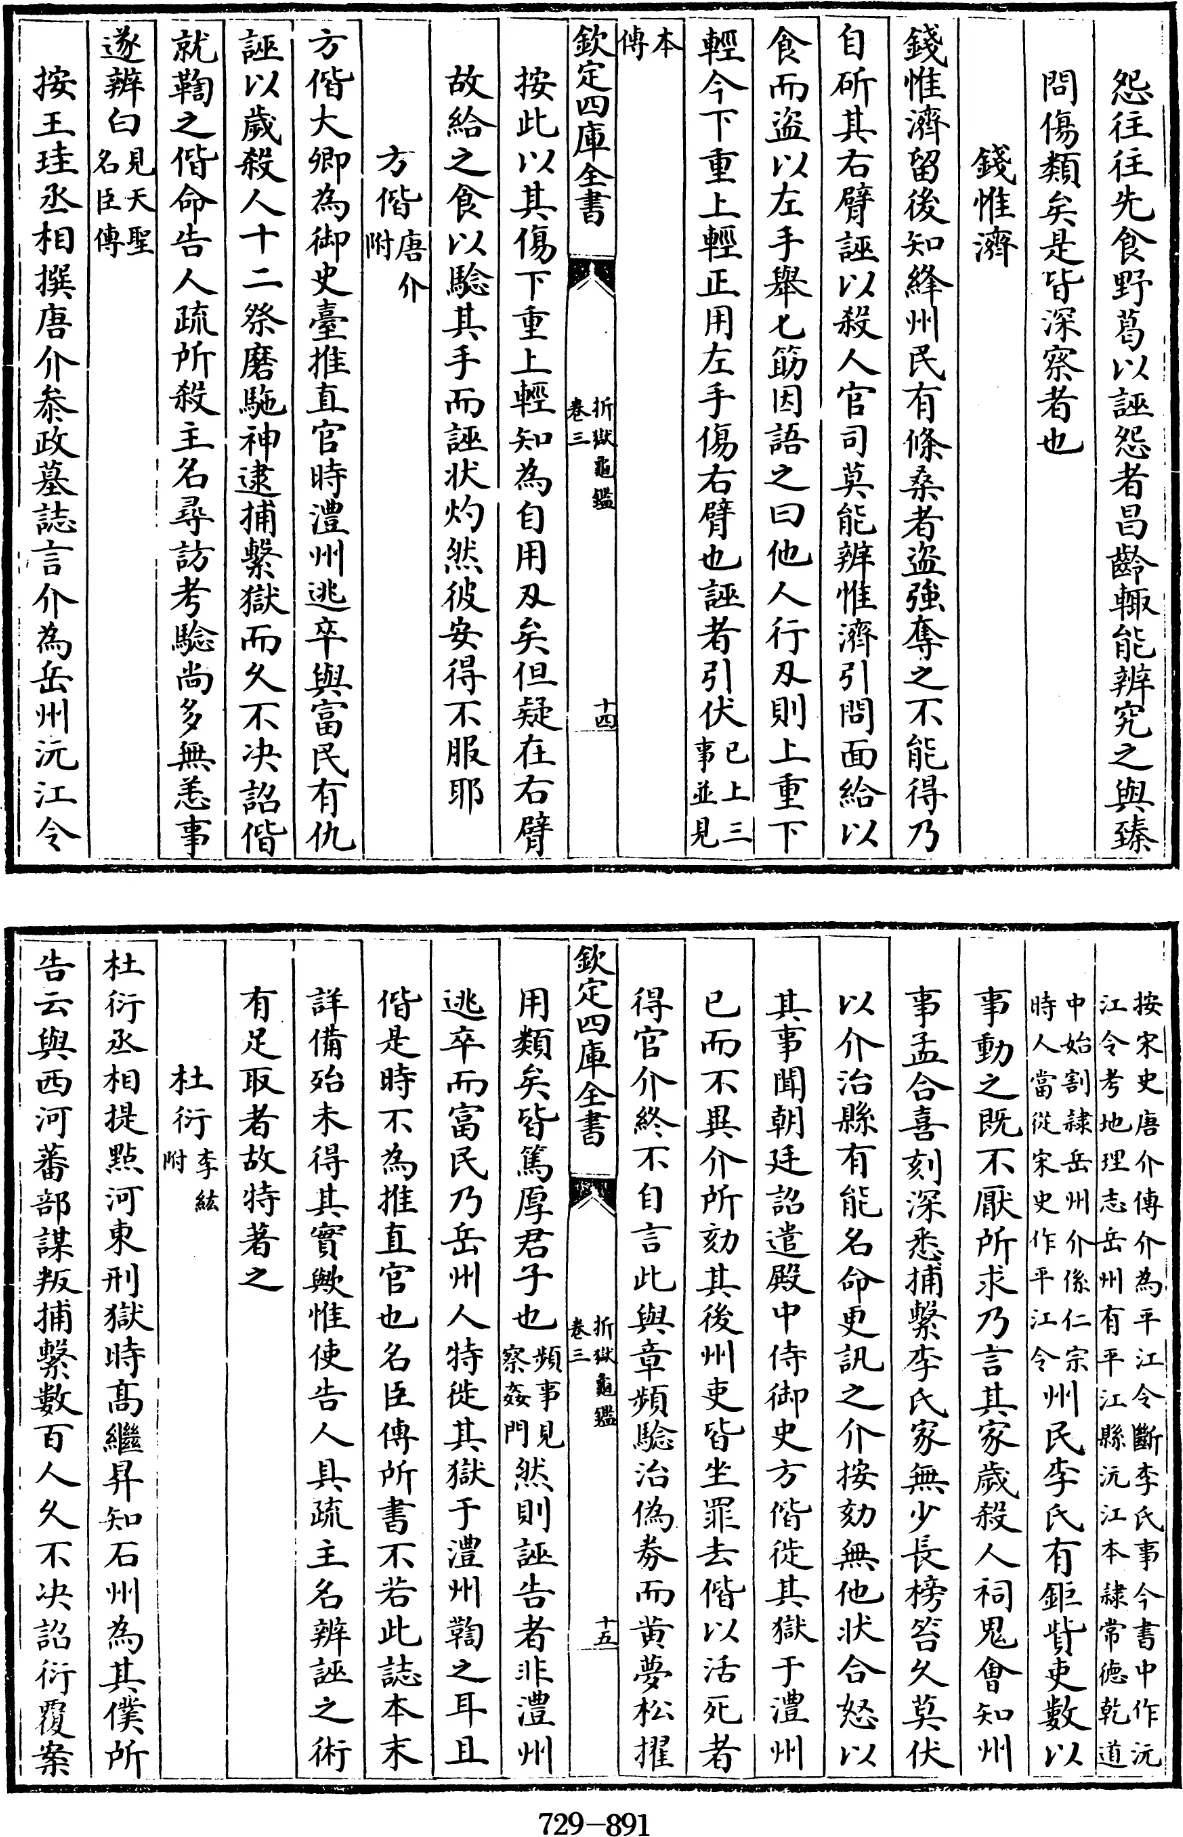 怨往往先食野葛以誣怨者昌齡輙能辨究之與臻
問傷類矣是皆深察者也
錢惟濟
錢惟濟留後知絳州民有條桑者盜強奪之不能得乃
自斫其右臂誣以殺人官司莫能辨惟濟引問面給以
食而盜以左手舉匕筯因語之曰他人行刄則上重下
輕今下重上輕正用左手傷右臂也誣者引伏已上三事並見
本傳
欽定四庫全書
折獄龜鑑
卷三
十四
按此以其傷下重上輕知為自用刄矣但疑在右臂
故給之食以驗其手而誣状灼然彼安得不服耶
方偕唐介附
方偕大卿為御史臺推直官時澧州逃卒與富民有仇
誣以歲殺人十二祭磨駞神逮捕繫獄而久不决詔偕
就鞫之偕命告人疏所殺主名尋訪考驗尚多無恙事
遂辨白見天聖名臣傳
按王珪丞相撰唐介叅政墓誌言介為岳州沅江令
按宋史唐介傳介為平江令斷李氏事今書中作沅
江令考地理志岳州有平江縣沅江本隸常德乾道
中始割隸岳州介係仁宗
時人當從宋史作平江令
州民李氏有鉅貲吏數以
事動之既不厭所求乃言其家歲殺人祠鬼會知州
事孟合喜刻深悉捕繫李氏家無少長榜笞久莫伏
以介治縣有能名命更訊之介按劾無他狀合怒以
其事聞朝廷詔遣殿中侍御史方偕徙其獄于澧州
已而不異介所劾其後州吏皆坐罪去偕以活死者
得官介終不自言此與章頻驗治偽劵而黄夢松擢
欽定四庫全書
折獄龜鑑
卷三
十五
用類矣皆篤厚君子也頻事見察姦門然則誣告者非澧州
逃卒而富民乃岳州人特徙其獄于澧州鞫之耳且
偕是時不為推直官也名臣傳所書不若此誌本末
詳備殆未得其實歟惟使告人具疏主名辨誣之術
有足取者故特著之
杜衍李紘附
杜衍丞相提㸃河東刑獄時髙繼昇知石州為其僕所
告云與西河蕃部謀叛捕繫數百人久不决詔衍覆案
729-891